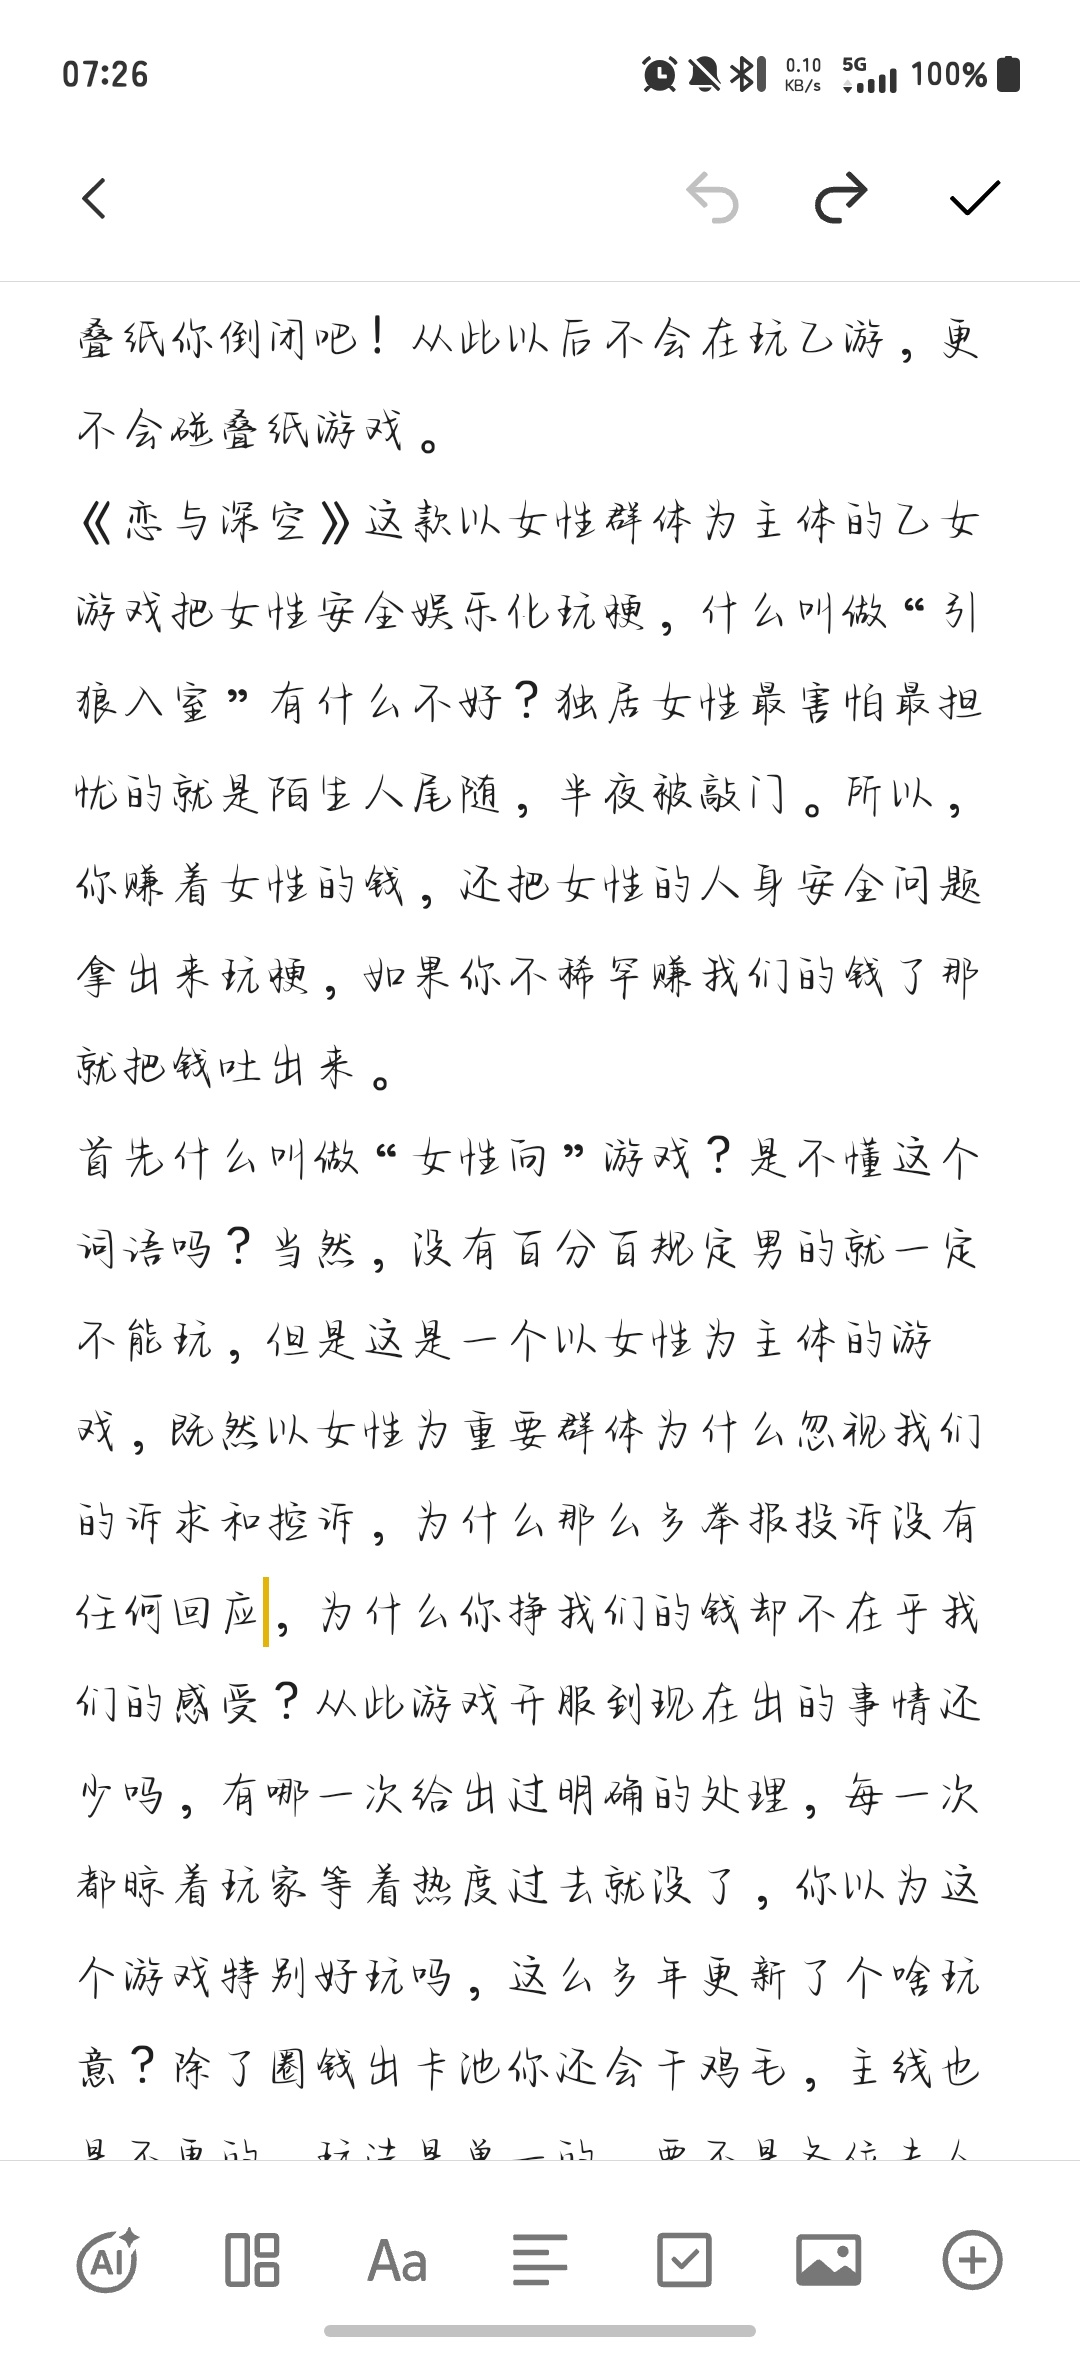 07:26
0.10
KB/s
5G
100%
叠纸你倒闭吧！从此以后不会在玩乙游，更
不会碰叠纸游戏。
《恋与深空》这款以女性群体为主体的乙女
游戏把女性安全娱乐化玩梗，什么叫做“引
狼入室”有什么不好？独居女性最害怕最担
忧的就是陌生人尾随，半夜被敲门。所以，
你赚着女性的钱，还把女性的人身安全问题
拿出来玩梗，如果你不稀罕赚我们的钱了那
就把钱吐出来。
首先什么叫做“女性向”游戏？是不懂这个
词语吗？当然，没有百分百规定男的就一定
不能玩，但是这是一个以女性为主体的游
戏，既然以女性为重要群体为什么忽视我们
的诉求和控诉，为什么那么多举报投诉没有
任何回应，为什么你挣我们的钱却不在乎我
们的感受？从此游戏开服到现在出的事情还
少吗，有哪一次给出过明确的处理，每一次
都晾着玩家等着热度过去就没了，你以为这
个游戏特别好玩吗，这么多年更新了个啥玩
意？除了圈钱出卡池你还会干鸡毛，主线也
是不更的，玩法是单一的，要不是各位夫人
AI
Aa